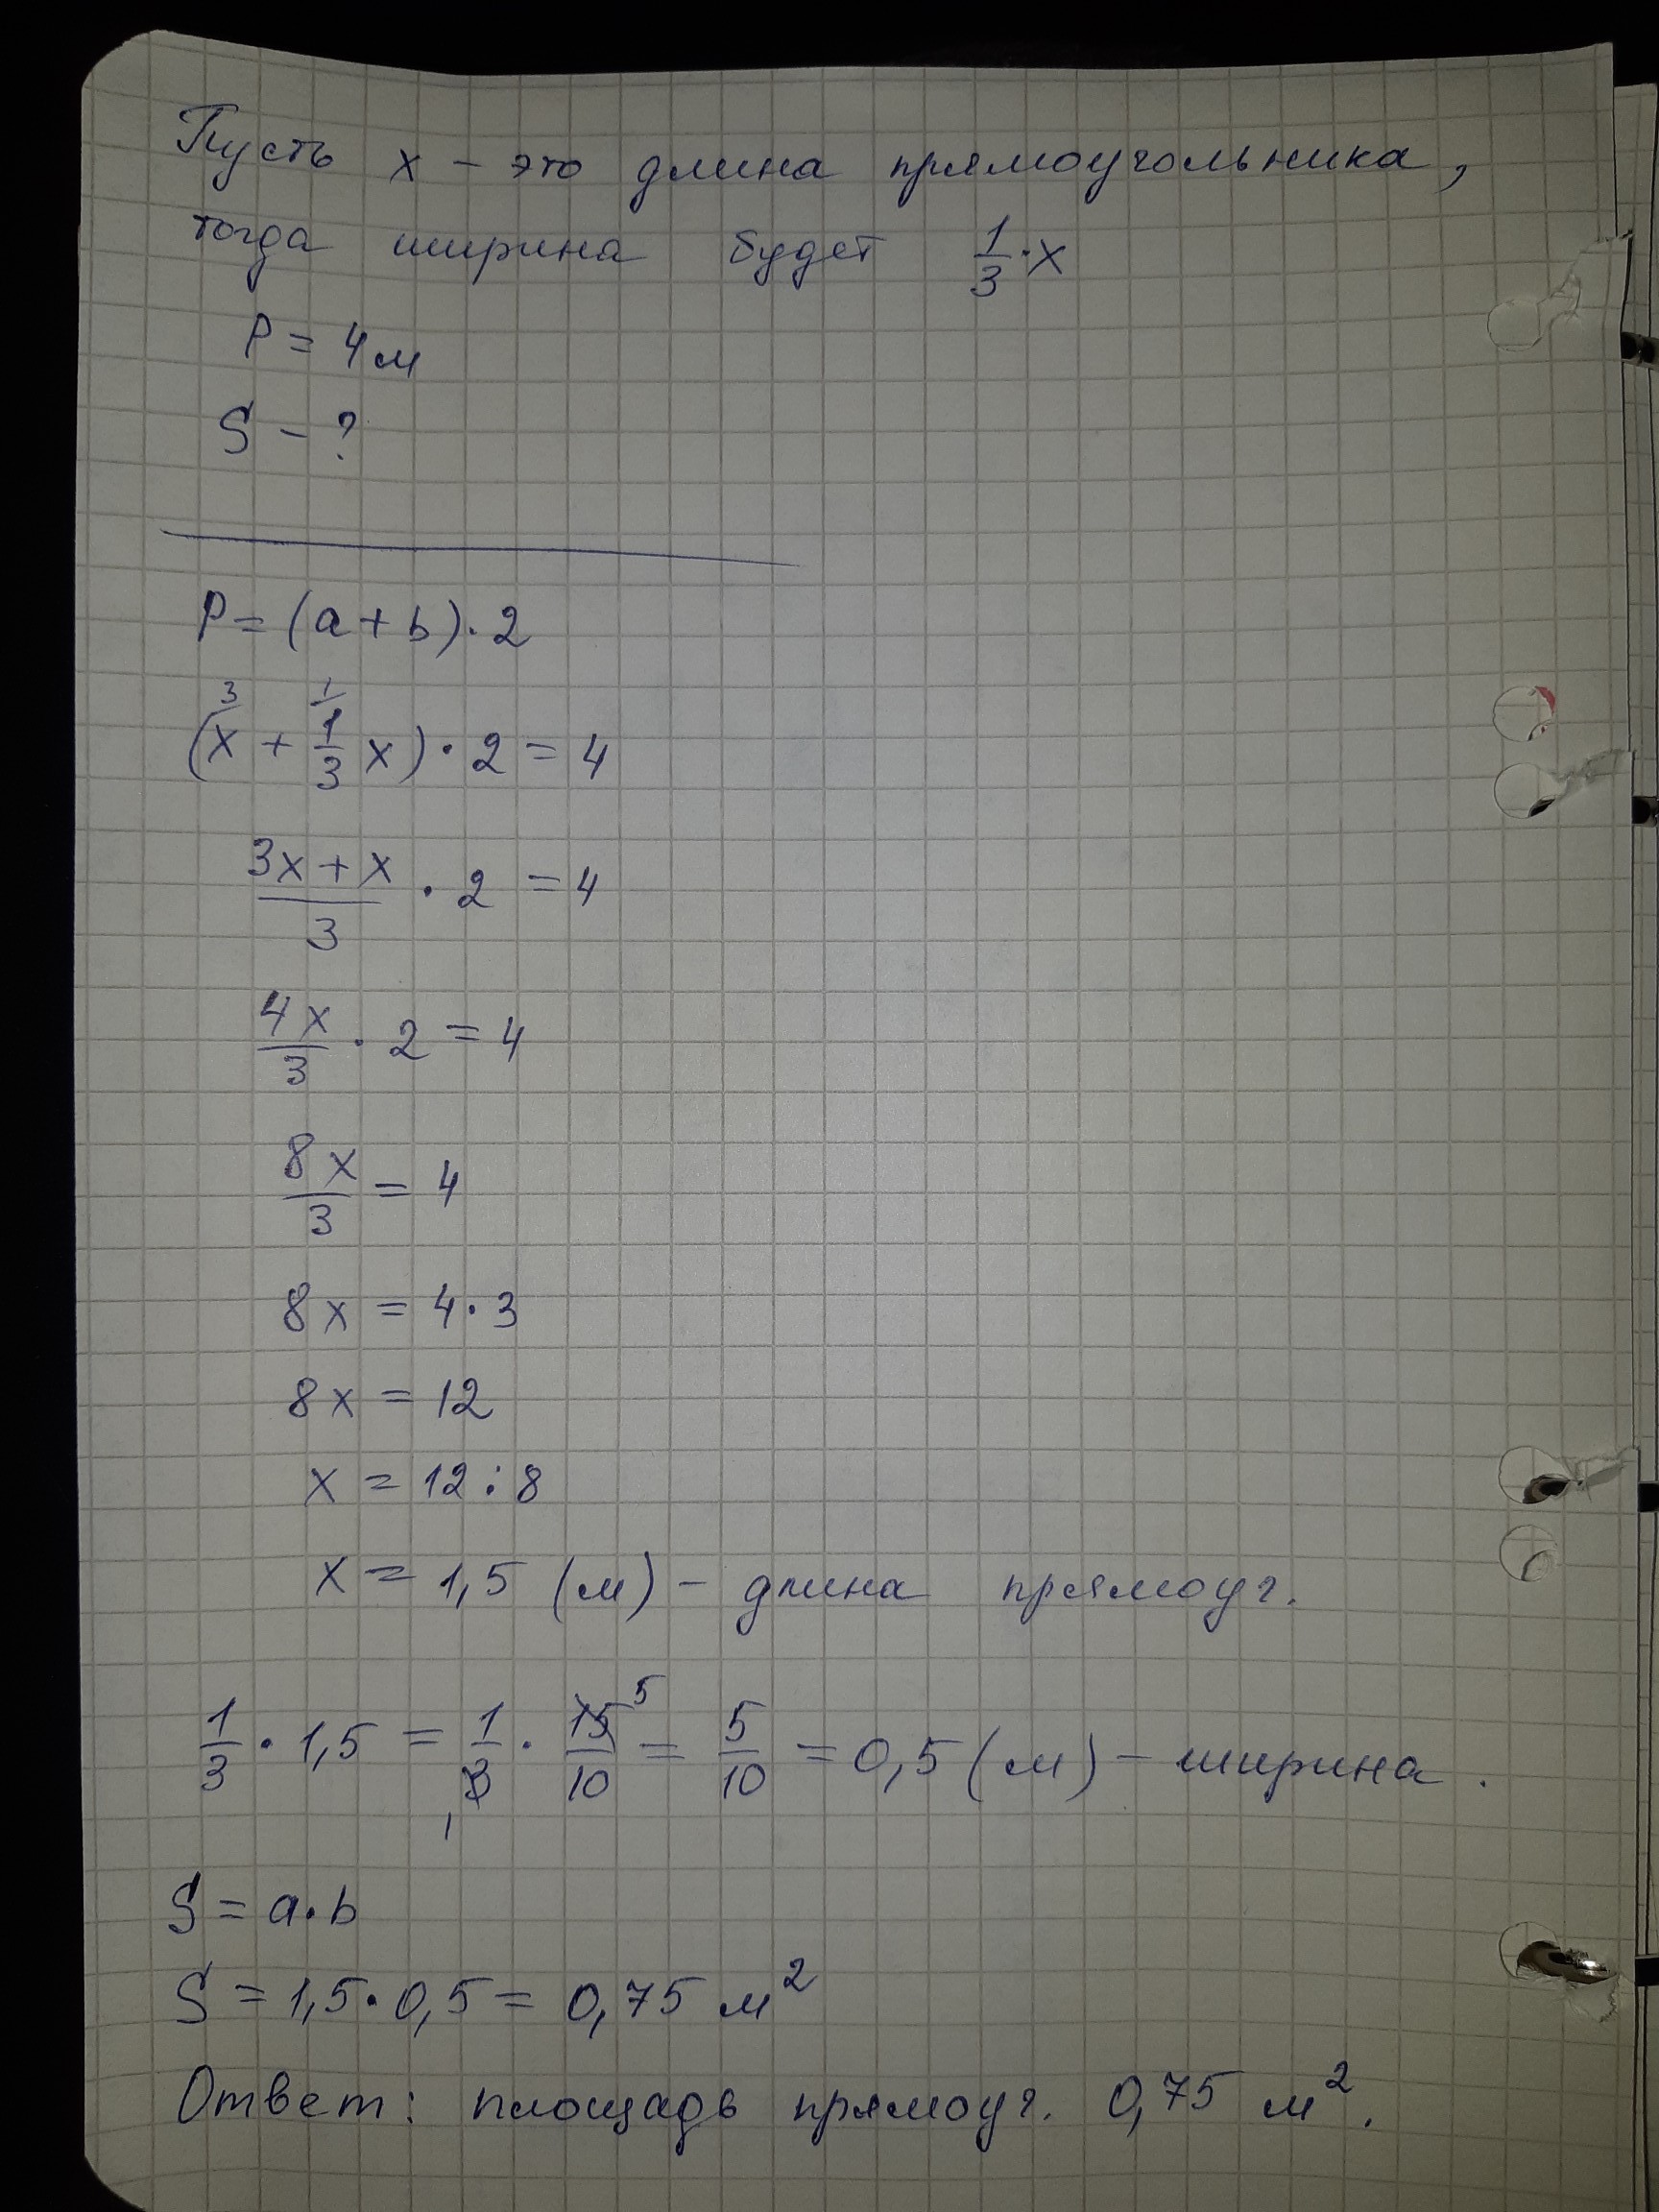 Пусть x – это длина прямоугольника,
тогда ширина будет 1/3 · x
P = 4м
S – ?
P = (a + b) · 2
(x^3 + 1/3^1 x) · 2 = 4
(3x + x)/3 · 2 = 4
4x/3 · 2 = 4
8x/3 = 4
8x = 4 · 3
8x = 12
x = 12 : 8
x = 1,5 (м) – длина прямоуг.
1/3 · 1,5 = 1/3 1 · 15/10 5 = 5/10 = 0,5 (м) – ширина.
S = a · b
S = 1,5 · 0,5 = 0,75 м²
Ответ: площадь прямоуг. 0,75 м².